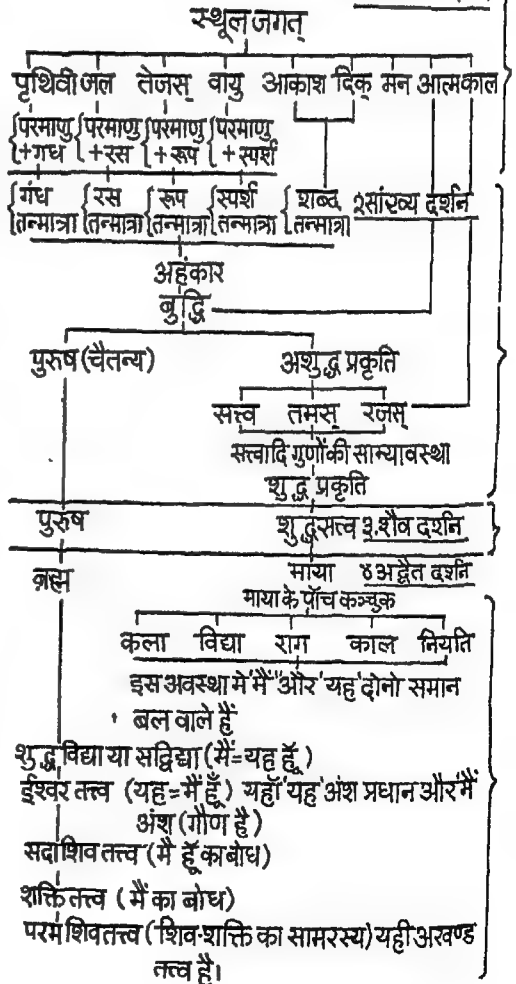 स्थूल जगत्
पृथिवी जल तेजस् वायु आकाश दिक् मन आत्म काल
{परमाणु {परमाणु {परमाणु {परमाणु
+गध +रस +रूप +स्पर्श
{गंध {रस {रूप {स्पर्श {शब्द २सांख्य दर्शन
तन्मात्रा {तन्मात्रा {तन्मात्रा {तन्मात्रा {तन्मात्रा
अहंकार
बुद्धि
पुरुष (चैतन्य) अशुद्ध प्रकृति
सत्त्व तमस् रजस्
सत्त्वादि गुणों की साम्यावस्था
शुद्ध प्रकृति
पुरुष शुद्धसत्त्व ३.शैव दर्शन
ब्रह्म माया ४अद्वैत दर्शन
माया के पॉच कञ्चुक
कला विद्या राग काल नियति
इस अवस्था मे 'मैं' 'और 'यह' दोनो समान
बल वाले हैं
शुद्ध विद्या या सद्विद्या (मैं=यह हूँ)
ईश्वर तत्त्व (यह=मैं हूँ) यहॉ 'यह' अंश प्रधान और 'मैं
अंश (गौण है)
सदाशिव तत्त्व (मै हूँ का बोध)
शक्ति तत्त्व (मैं का बोध)
परम शिवतत्त्व (शिव-शक्ति का सामरस्य) यही अखण्ड
तत्त्व है।